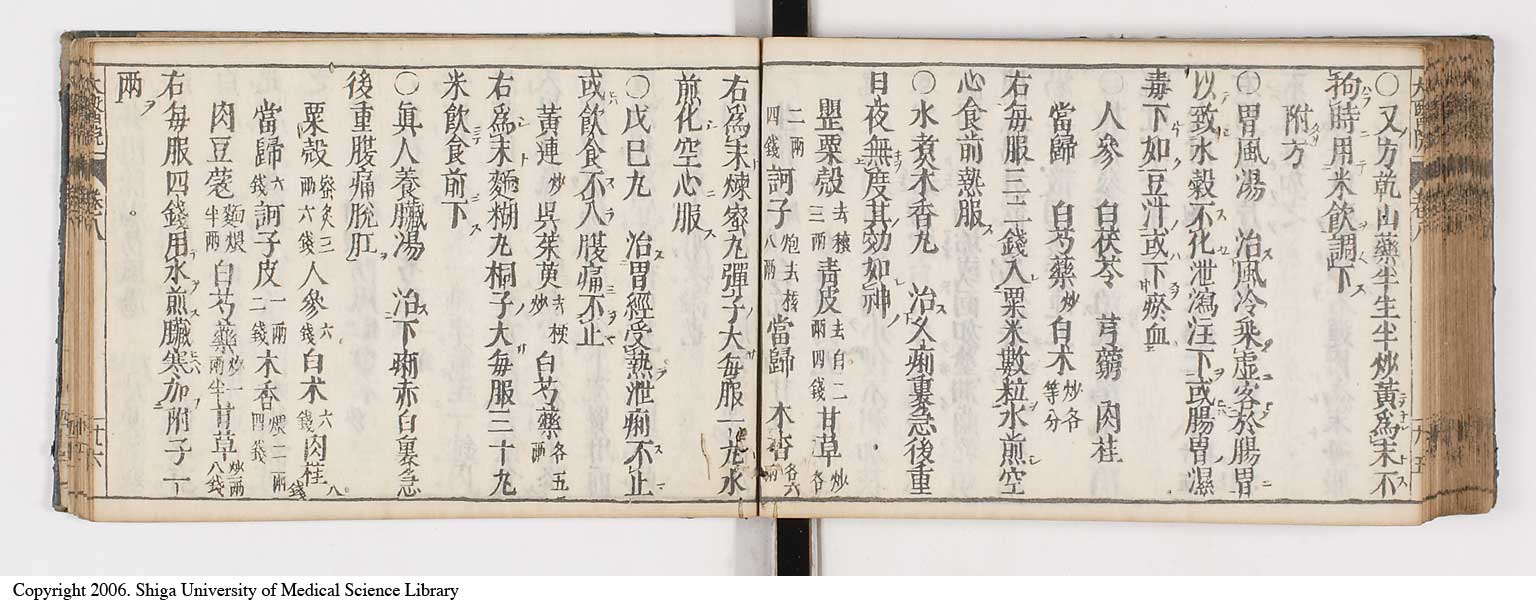 〇又方乾山藥半生半炒黃爲末不
拘時用米飮調下
附方
〇胃風湯　治風冷乘虛客於腸胃
以致水穀不化泄瀉注下或腸胃濕
毒下如豆汁或下瘀血
人參　白茯苓　芎藭　肉桂
當歸　白芍藥炒　白朮炒各等分
右每服三二錢入粟米數粒水煎空
心食前熱服
〇水煮木香丸　治久痢裏急後重
日夜無度其効如神
罌粟殼去穰三兩　青皮去白二兩四錢　甘草炒各
二兩四錢　訶子炮去核八兩　當歸　木香各六兩
右爲末煉蜜丸彈子大每服一丸水
煎化空心服
〇戊巳丸　治胃經受熱泄痢不止
或飮食不入腹痛不止
黃連炒　吳茱萸去梗炒　白芍藥各五兩
右爲末麵糊丸桐子大每服三十丸
米飮食前下
〇眞人養臟湯　治下痢赤白裏急
後重腹痛脫肛
粟殼蜜炙三兩六錢　人參六錢　白朮六錢　肉桂八錢
當歸六錢　訶子皮一兩二錢　木香煨二兩四錢
肉豆蔻麵煨半兩　白芍藥炒一兩半　甘草炒兩八錢
右每服四錢用水煎臟寒加附子一
兩
卷八
十六
Copyright 2006. Shiga University of Medical Science Library